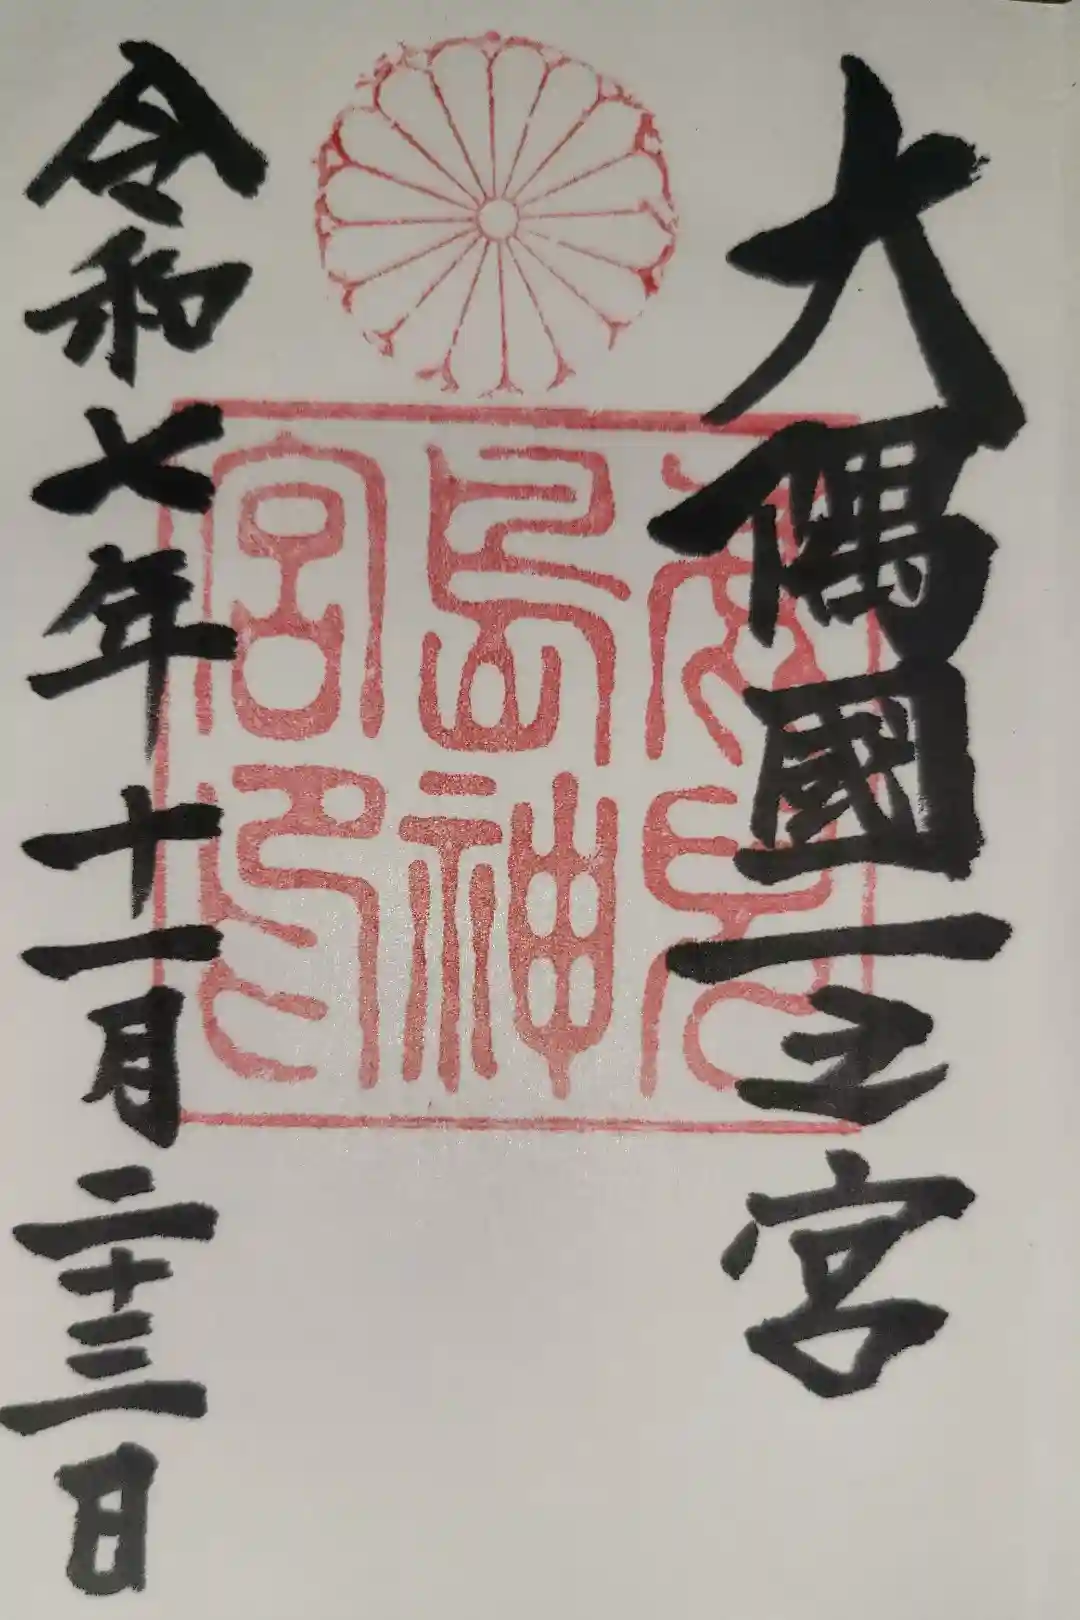 大隅國一之宮
鹿兒
島神
宮印
令和七年十一月二十三日